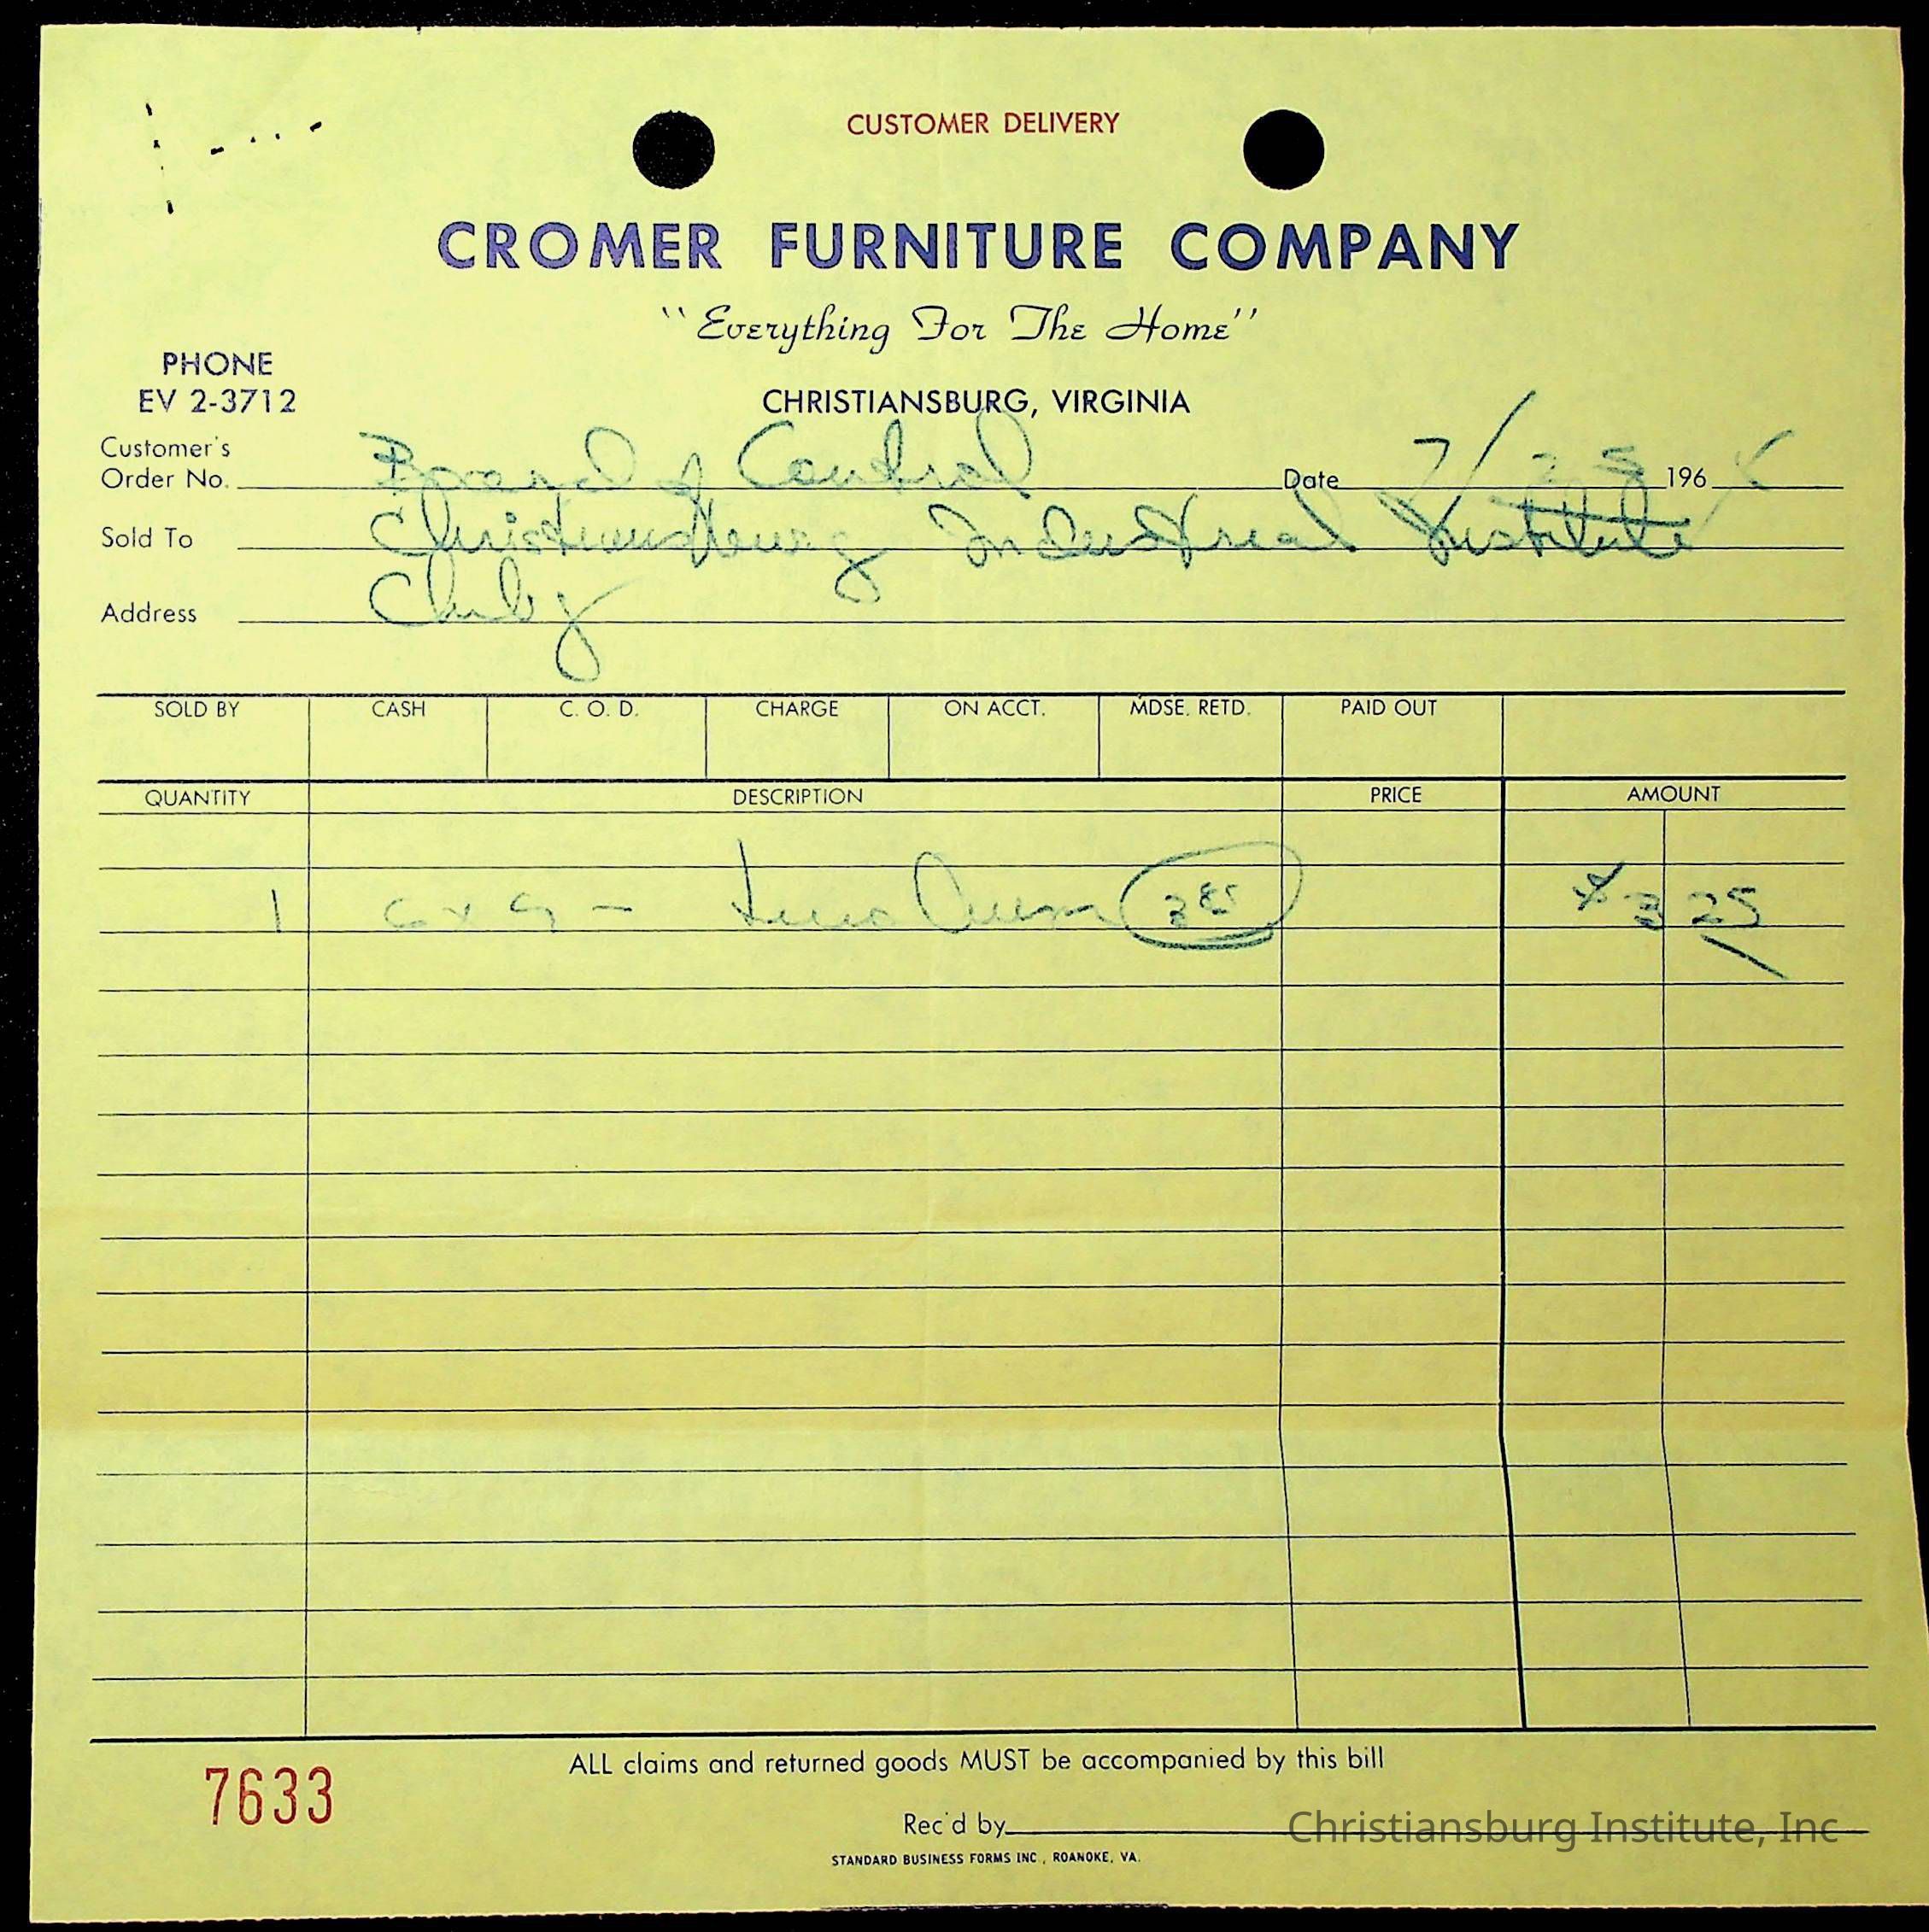 CUSTOMER DELIVERY
CROMER FURNITURE COMPANY
"Everything For The Home"
PHONE
EV 2-3712
CHRISTIANSBURG, VIRGINIA
Customer's
Order No. Board of Control Date 7/25 196
Sold To Christiansburg Industrial Institute
Address Chbg
SOLD BY CASH C. O. D. CHARGE ON ACCT. MDSE. RETD. PAID OUT
QUANTITY DESCRIPTION PRICE AMOUNT
1 6 x 9 - $3 25
ALL claims and returned goods MUST be accompanied by this bill
7633
Rec'd by
Christiansburg Institute, Inc
STANDARD BUSINESS FORMS INC., ROANOKE, VA.